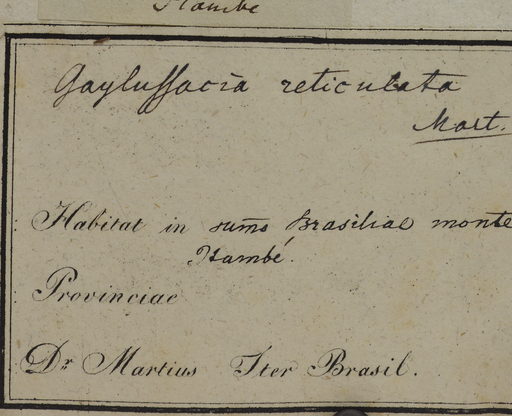 Itambé
Gaylussacia reticulata
Mart.
Habitat in sum̄o Brasiliae monte
Itambé.
Provinciae
Dr. Martius Iter Brasil.